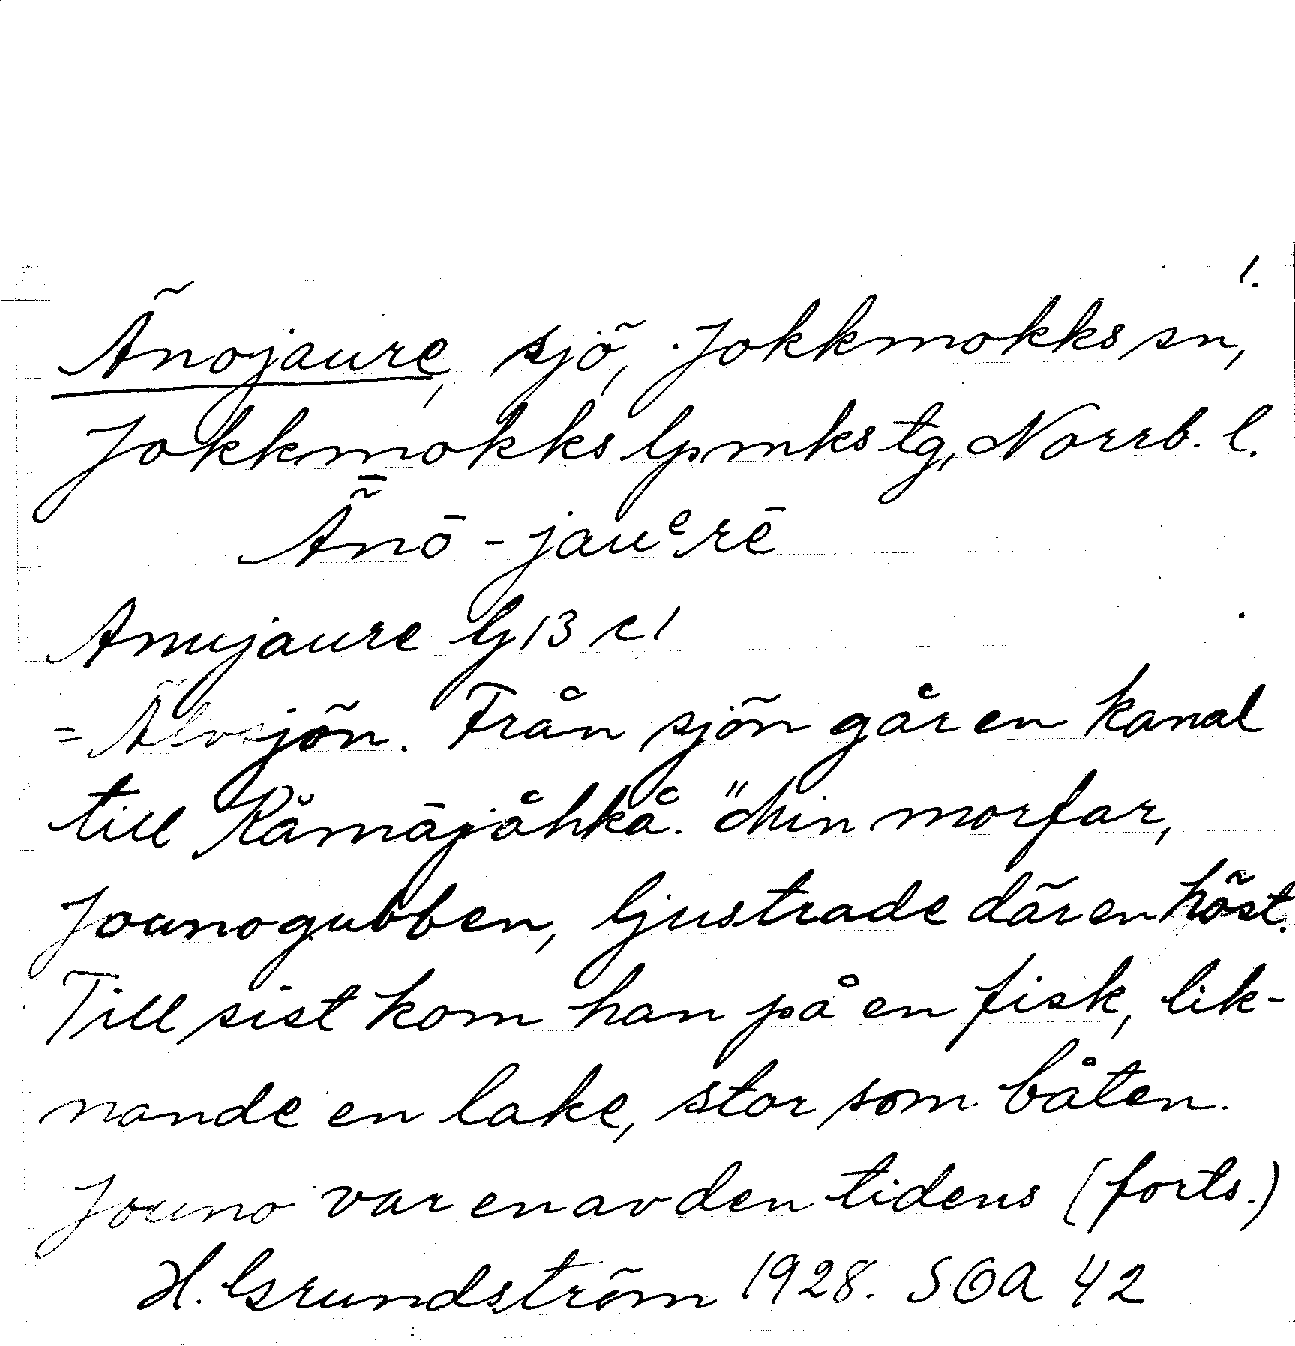 1.
Änojaure, sjö, Jokkmokks sn,
Jokkmokks lpmks tg, Norrb. l.
Ǟnō - jauᵉrē
Anujaure lj 13 c1
= Älvsjön. Från sjön går en kanal
till Råmäjåhkå. "Min morfar,
Jounogubben, ljustrade där en höst.
Till sist kom han på en fisk, lik-
nande en lake, stor som båten.
Jouno var en av den tidens (forts.)
H. Grundström 1928. SOA 42